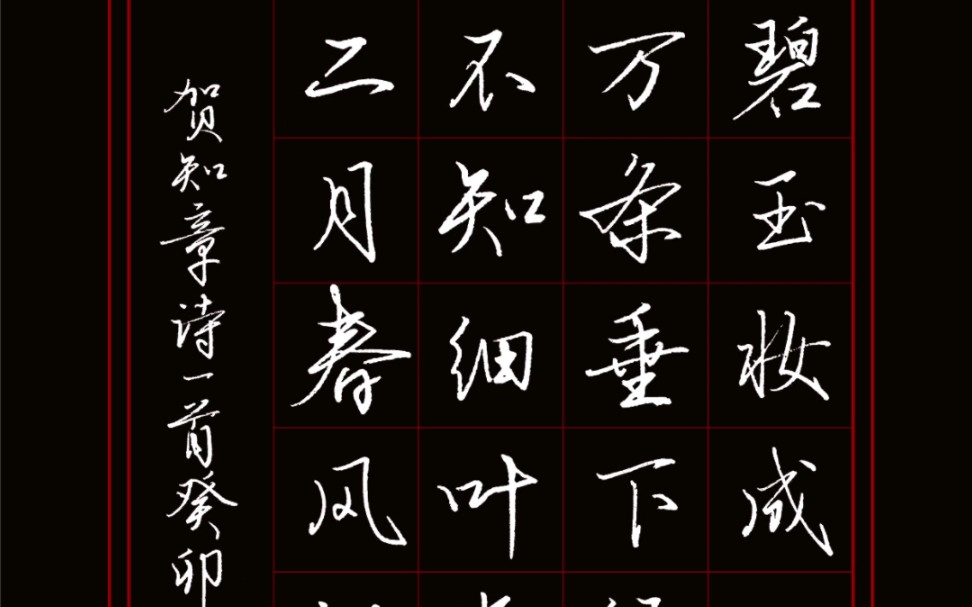 碧玉妆成
万条垂下
不知细叶
二月春风
贺知章诗一首癸卯